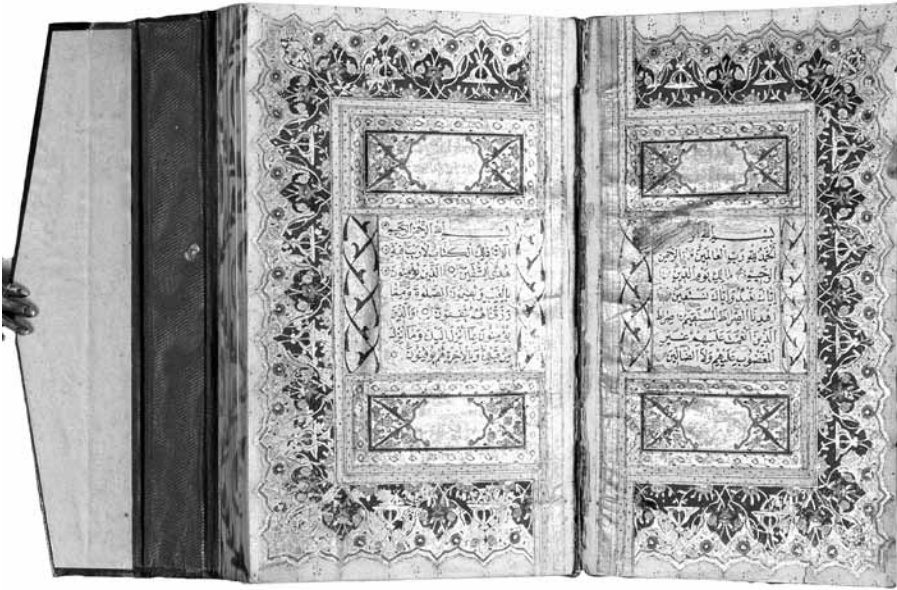 بسم الله
الحمد لله رب العالمين الرحمن
الرحيم مالك يوم الدين
اياك نعبد واياك نستعين
اهدنا الصراط المستقيم صراط
الذين انعمت عليهم غير
المغضوب عليهم ولا الضالين
بسم الله الرحمن الرحيم
الم ذلك الكتاب لا ريب فيه
هدى للمتقين الذين يؤمنون
بالغيب ويقيمون الصلوة ومما
رزقناهم ينفقون والذين
يؤمنون بما انزل اليك وما انزل
من قبلك وبالاخرة هم يوقنون